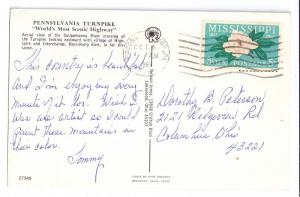 PENNSYLVANIA TURNPIKE
"World's Most Scenic Highway"
Aerial view of the Susquehanna River crossing of
the Turnpike looking eastward with village of High-
spire and Interchange, Harrisburg East, to far dis-
tance.
MISSISSIPPI
This country is beautiful
and I'm enjoying every
minute of it too. Wish I
was an artist so I could
paint these mountains in
their color.
Tommy
Dorothy B. Peterson
2121 Ridgeview Rd
Columbus, Ohio
43221
C7345